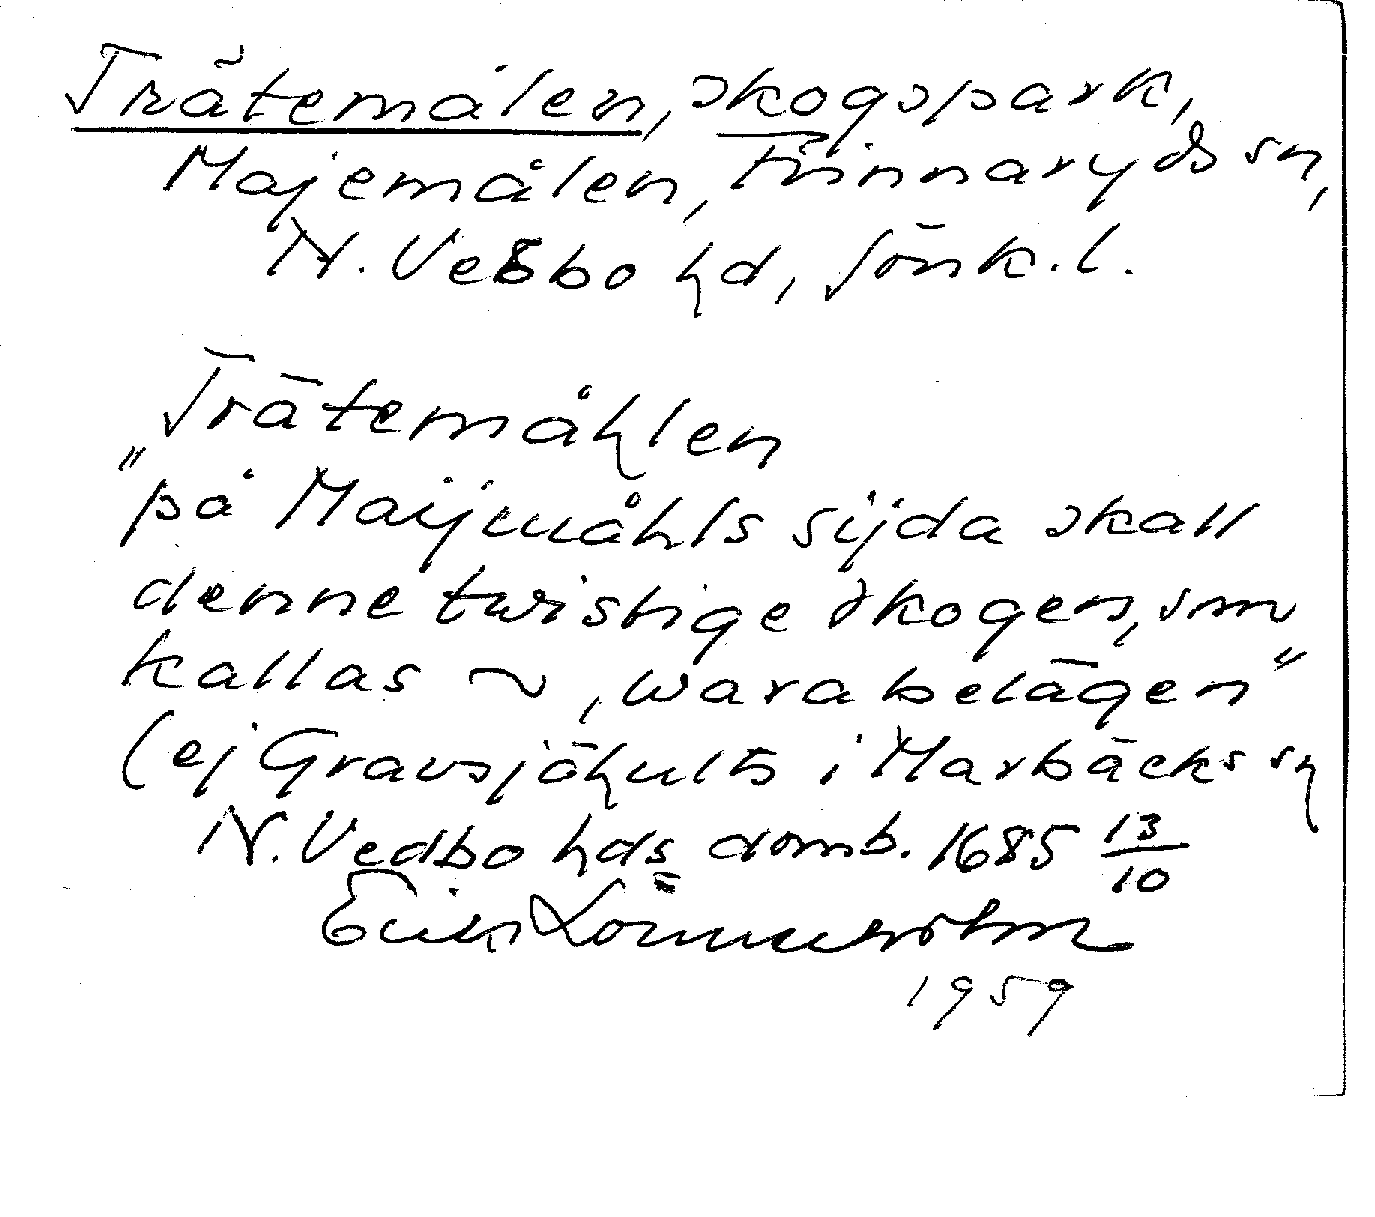 Trätemålen, skogspark,
Majemålen, Frinnaryds sn,
N. Vedbo hd, Jönk. l.
Trätemåhlen
"på Maijmåhls sijda skall
denne twistige skogen, som
kallas ~, wara belägen"
(ej Gravsjöhults i Marbäcks sn
N. Vedbo hds domb. 1685 13/10
Erik Lönnerholm
1959